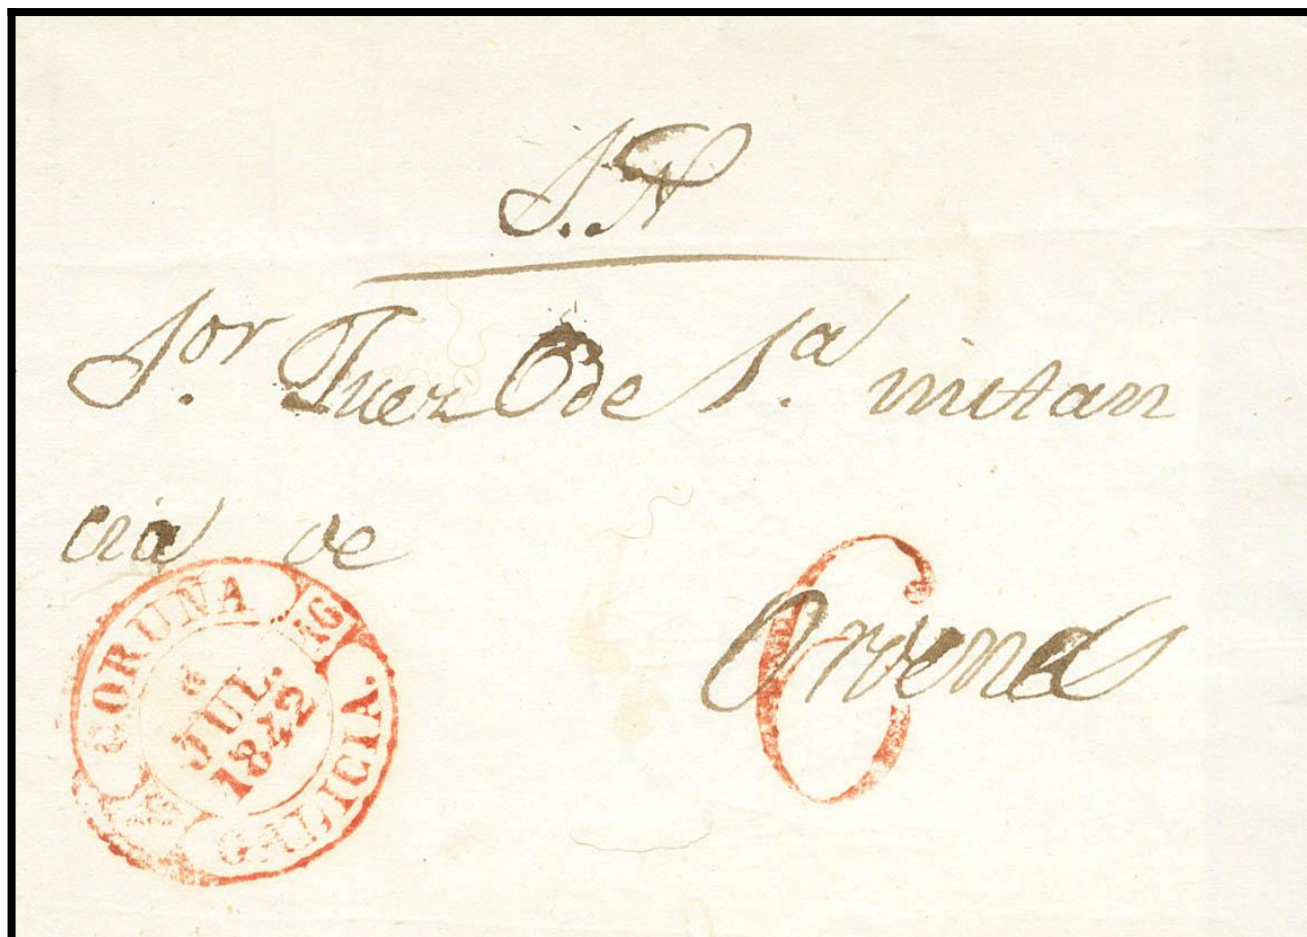 S.N
S.or Juez de 1.a instan
cia de
Ordenes
6
CORUÑA
JUL.
1842
GALICIA.